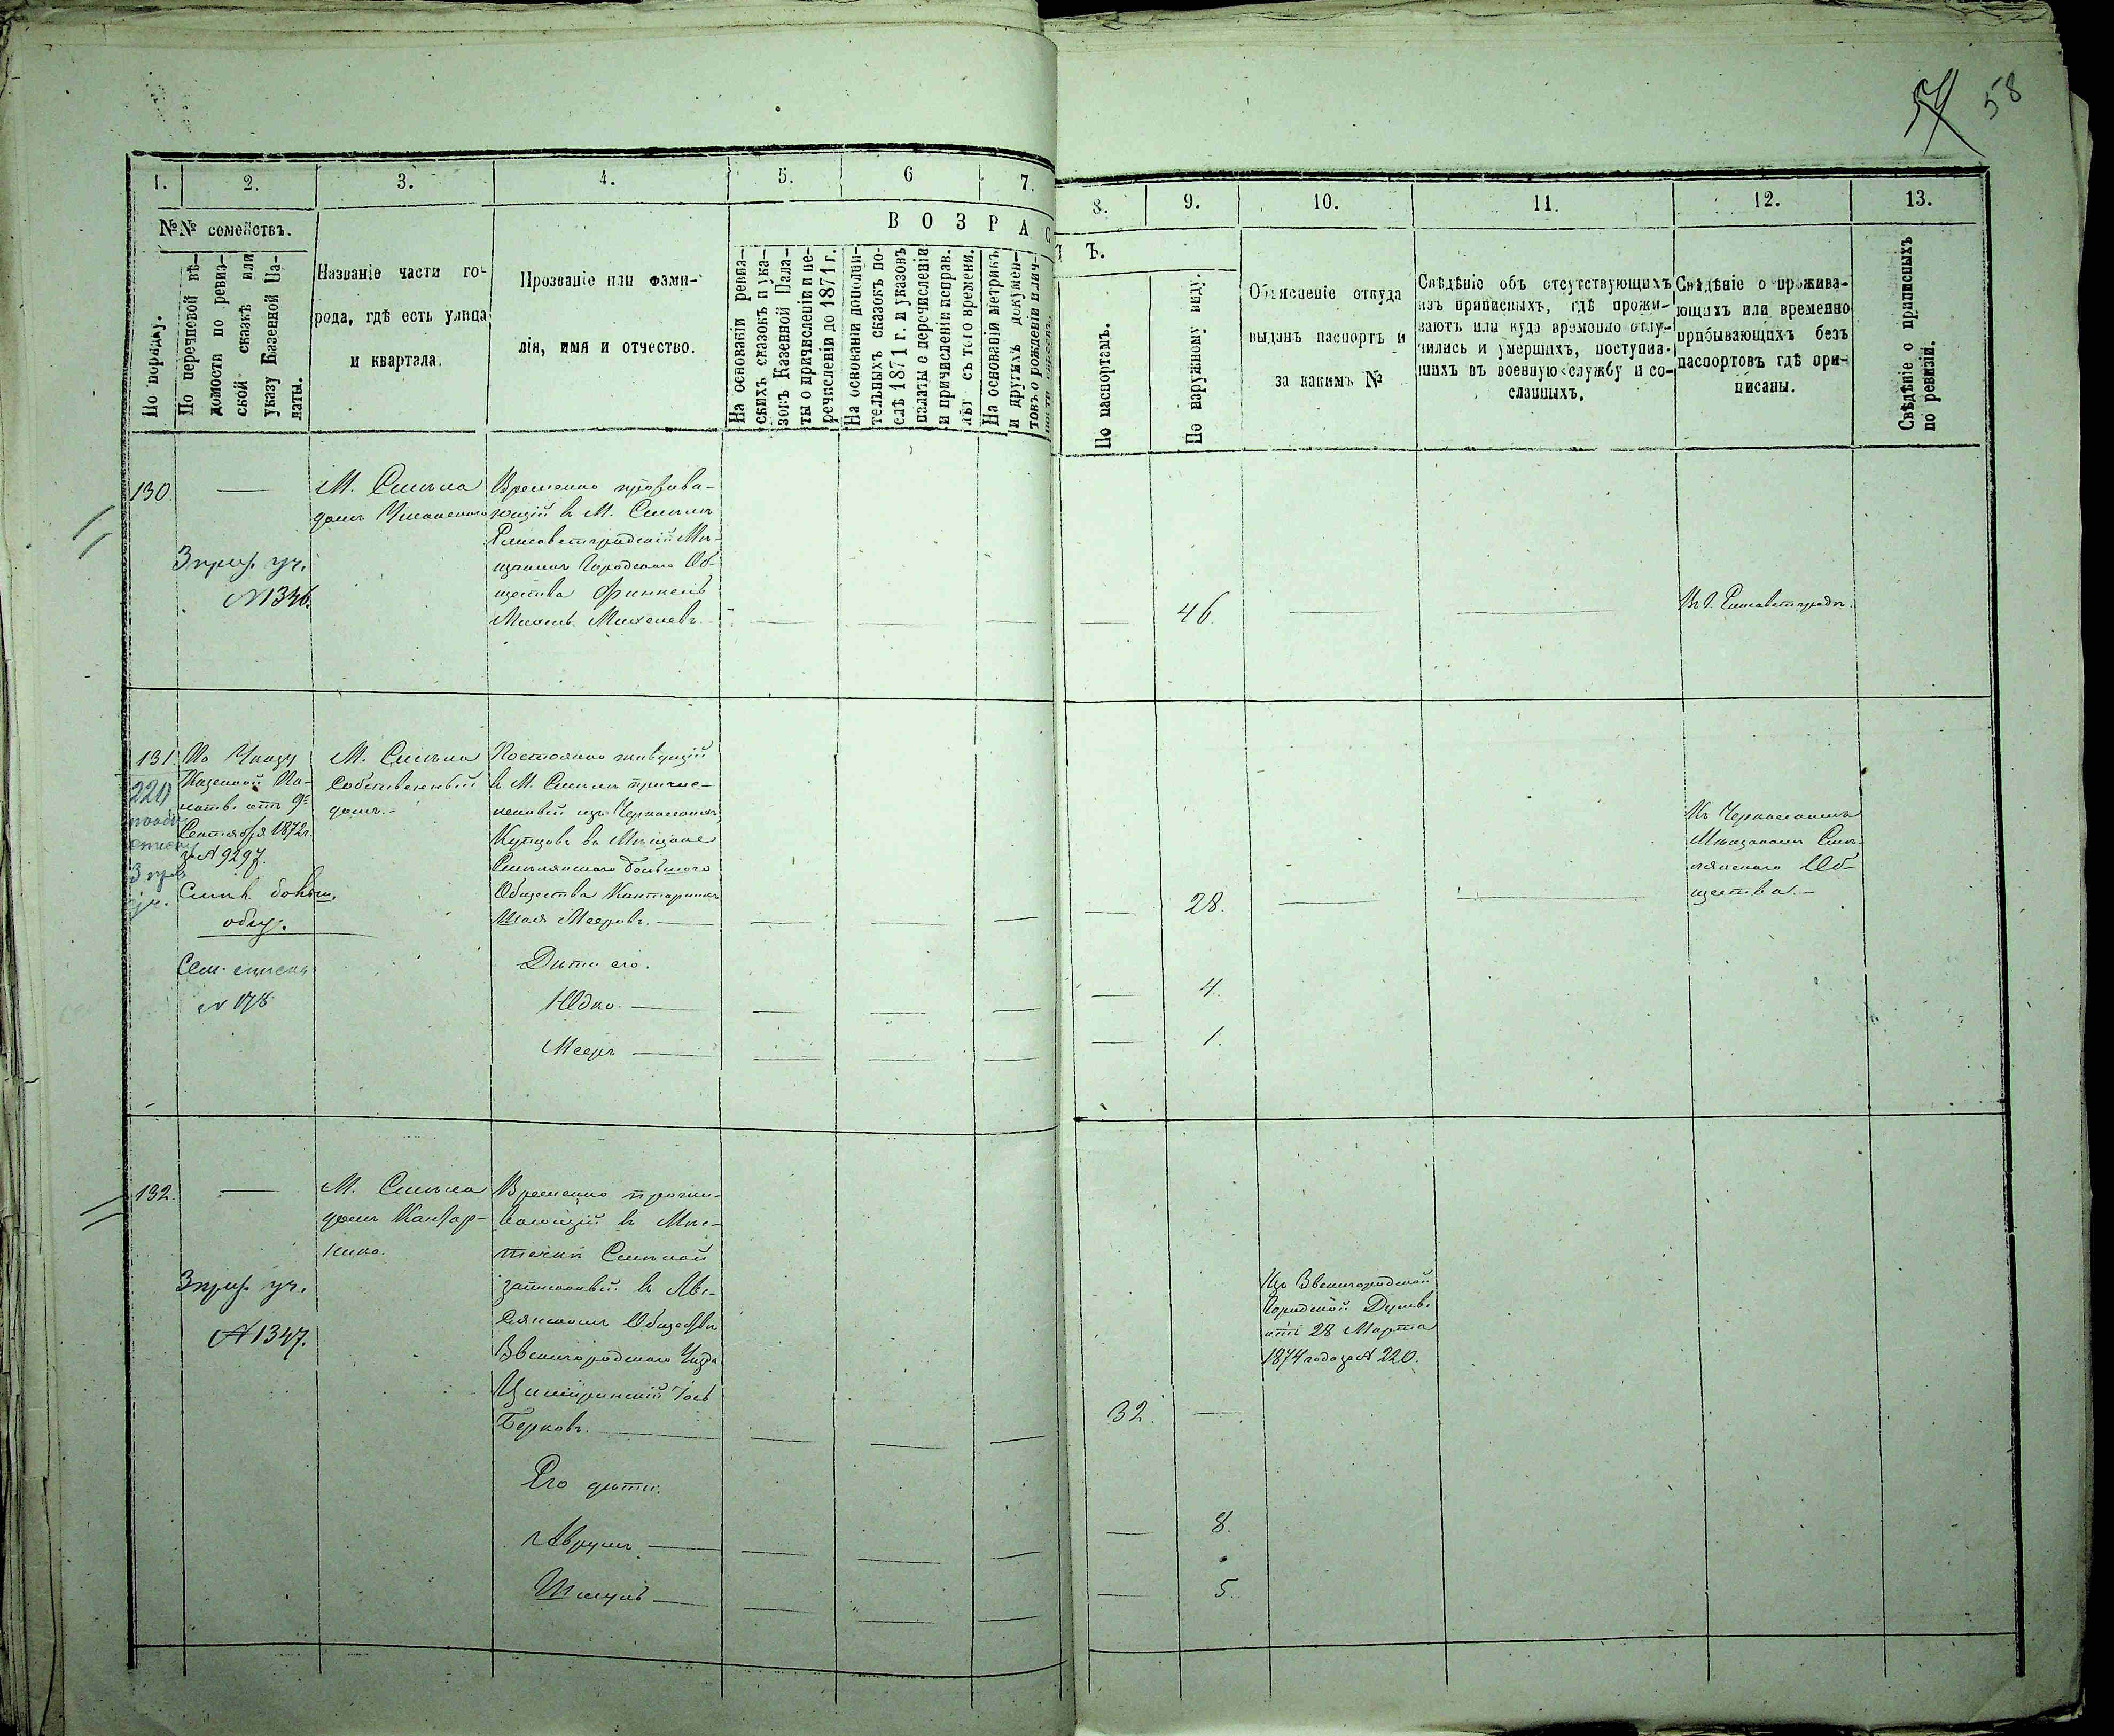 54 58
1. 2. 3. 4. 5. 6 7. 8. 9. 10. 11. 12. 13.
№№ семействъ.
По порядку.
По перечневой вѣ-
домости по ревиз-
ской сказкѣ или
указу Казенной Па-
латы.
Названіе части го-
рода, гдѣ есть улица
и квартала.
Прозваніе или фами-
лія, имя и отчество.
ВОЗРАСТЪ.
На основаніи ревиз-
скихъ сказокъ и ука-
зовъ Казенной Пала-
ты о причисленіи и пе-
речисленіи до 1871 г.
На основаніи дополни-
тельныхъ сказокъ по-
слѣ 1871 г. и указовъ
палаты о перечисленіи
и причисленіи исправ.
лѣт съ того времени.
На основаніи метрикъ
и другихъ докумен-
товъ о рожденіи и лич-
По паспортамъ.
По наружному виду.
Объясненіе откуда
выданъ паспортъ и
за какимъ №
Свѣдѣніе объ отсутствующихъ
изъ приписныхъ, гдѣ прожи-
ваютъ или куда временно отлу-
чились и умершихъ, поступив-
шихъ въ военную службу и со-
сланныхъ.
Свѣдѣніе о прожива-
ющихъ или временно
прибывающихъ безъ
паспортовъ гдѣ при-
писаны.
Свѣдѣніе о приписныхъ
по ревизіи.
130.
3 приз. уч.
№ 1346.
М. Смѣла
домъ
Временно прожива-
ющій въ М. Смѣлѣ
Елисаветградскій Мѣ-
щанинъ Городского Об-
щества Финкель
Михель Михелевъ.
46.
Въ Г. Елисаветградѣ.
131.
220
3 приз
уч.
По Указу
Казенной Па-
латы отъ 9го
Сентября 1872 г.
за № 9297.
Смѣл.
общ.
Сем. списка
№ 178
М. Смѣла
Собственный
домъ.
Постоянно живущій
въ М. Смѣлѣ причис-
ленный изъ Черкасскихъ
Купцовъ въ Мѣщане
Смѣлянского
Общества Кантарникъ
Шая Мееровъ.
28.
Къ Черкасскимъ
Мѣщанамъ Смѣ-
лянского Об-
щества.
Дѣти его.
Юдко 4.
Мееръ 1.
132.
3 приз. уч.
№ 1347.
М. Смѣла
домъ Кантар-
ника.
Временно прожи-
вающій въ Мѣс-
течкѣ Смѣлой
записанный въ Лы-
сянскомъ Обществѣ
Звенигородского Уѣзда
Іось
Берковъ.
32.
Изъ Звенигородской
Городской Думы
отъ 28 Марта
1874 года за № 220.
Его дѣти.
Аврумъ 8.
Шмуль 5.